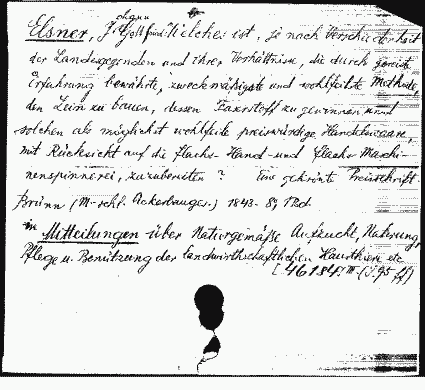 Elsner, Johann Gottfried: Welches ist, je nach Verschiedenheit
der Landesgegenden und ihrer Verhältnisse, die durch gereifte
Erfahrung bewährte, zweckmäßigste und wohlfeilste Methode,
den Lein zu bauen, dessen Faserstoff zu gewinnen und
solchen als möglichst wohlfeile preiswürdige Handelswaare,
mit Rücksicht auf die Flachs-Hand- und Flachs-Maschi-
nenspinnerei, zuzubereiten? Eine gekrönte Preisschrift.
Brünn (M.-schl. Ackerbauges.) 1843. 8° Bd.
in Mitteilungen über Naturgemäße Aufzucht, Nahrung,
Pflege u. Benützung der landwirthschaftlichen Hausthiere etc
[46184. III